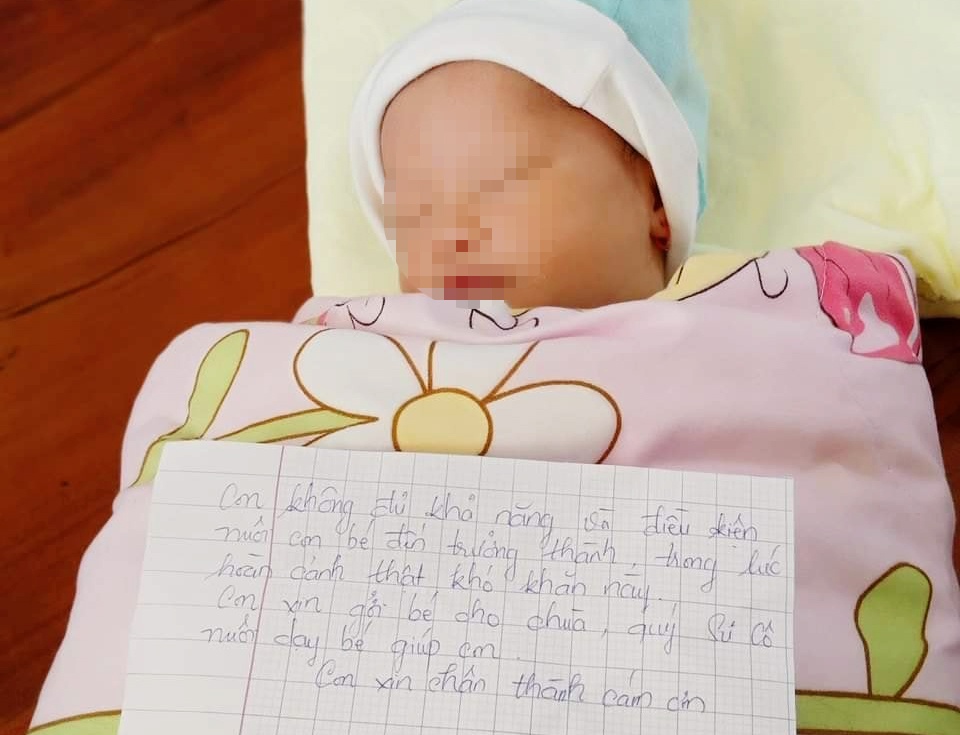 Con không đủ khả năng và điều kiện
nuôi con bé đến trưởng thành, trong lúc
hoàn cảnh thật khó khăn này.
Con xin gởi bé cho chùa, quý Sư Cô
nuôi dạy bé giúp con.
Con xin chân thành cám ơn